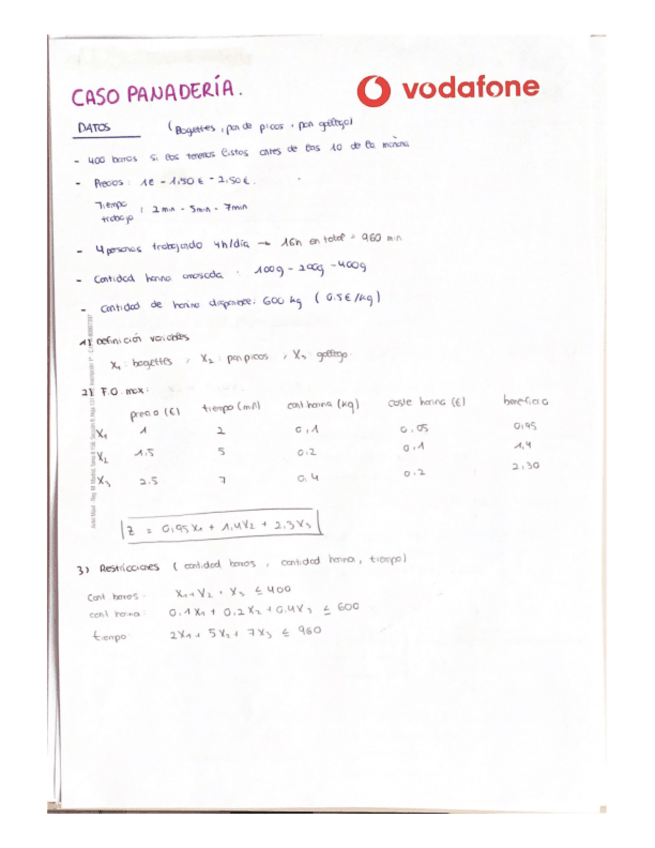 CASO PANADERÍA.
vodafone
DATOS (Bagettes, pan de picos, pan gallego)
- 400 barras si las tenemos listas antes de las 10 de la mañana
- Precios: 1€ - 1,50€ - 2,50€.
Tiempo trabajo: 2min - 5min - 7min
- 4 personas trabajando 4h/día → 16h en total = 960 min
- Cantidad harina amasada: 100g - 200g - 400g
- Cantidad de harina disponible: 600 kg (0.5€/kg)
1) Definición variables
X₁: bagettes, X₂: pan picos, X₃: gallego.
2) F.O. max:
precio (€) tiempo (min) cant harina (kg) coste harina (€) beneficio
X₁ 1 2 0,1 0,05 0,95
X₂ 1.5 5 0.2 0.1 1,4
X₃ 2.5 7 0,4 0.2 2,30
Z = 0,95X₁ + 1,4X₂ + 2,3X₃
3) Restricciones (cantidad barras, cantidad harina, tiempo)
Cant barras: X₁ + X₂ + X₃ ≤ 400
cant harina: 0.1X₁ + 0,2X₂ + 0,4X₃ ≤ 600
tiempo: 2X₁ + 5X₂ + 7X₃ ≤ 960